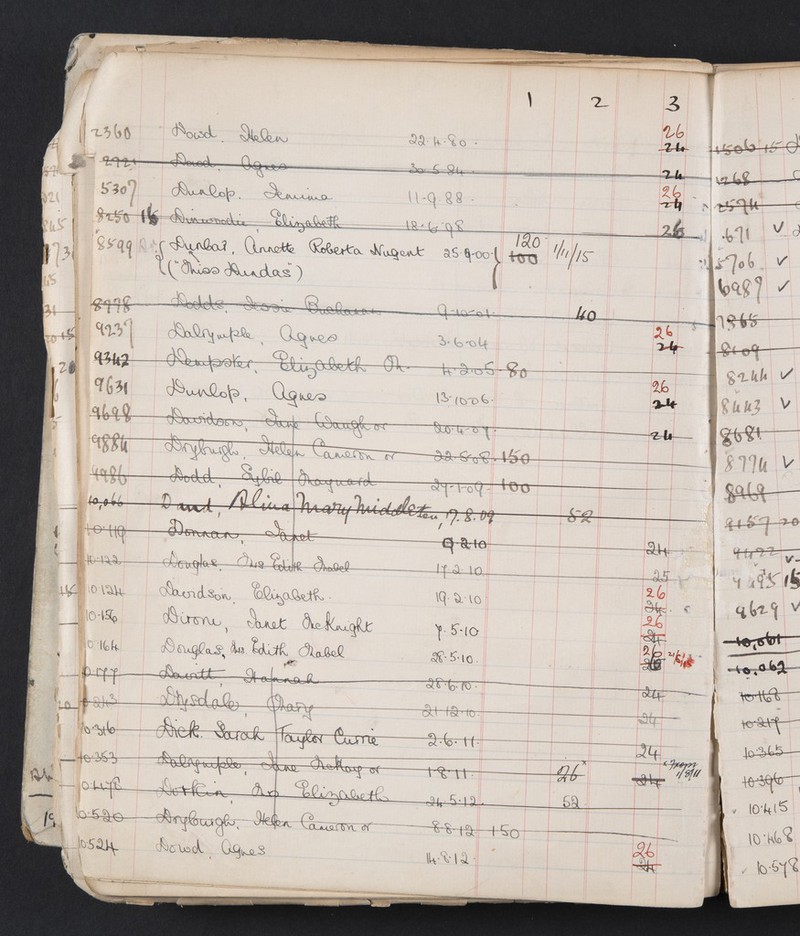 1 2 3
2360 Dowd, Helen 22.4.80. 26 24
Dowd, Agnes 30.5.84 24
5307 Dunlop, Jemima 11.9.88. 26 24
8250 Dinwoodie, Elizabeth 18.6.98 26
8599 Dunbar, Annette Roberta Nugent 25.9.00 120 100 1/11/15
("Miss Dundas")
8978 Dodds, Jessie Buchanan 9.10.01. 40
9237 Dalrymple, Agnes 3.6.04 26 24
9342 Dempster, Elizabeth M. 4.2.05. 80
9631 Dunlop, Agnes 13.10.06. 26 24
9698 Davidson, Jane Waugh or 20.4.07. 24
9884 Dryburgh, Helen Cameron or 22.5.08. 150
9986 Dodd, Sybil Maynard 27.1.09. 100
10,066 Alina Mary Middleton, 7.8.09 52
10.119 Donnan, Janet 9.2.10 24
10.122 Douglas, Mrs Edith Isabel 17.2.10 25
10.124 Davidson, Elizabeth. 19.2.10 26 24
10.156 Dirom, Janet McKnight 7.5.10 26 24
10.164 Douglas, Mrs Edith Isabel 28.5.10. 26
10.177 Davitt, Hannah 28.6.10. 24
10.243 Drysdale, Mary 21.12.10. 24
10.316 Dick, Sarah Taylor Currie 2.6.11. 24
10.353 Dalrymple, Jane McKay or 1.8.11. 26 24 from 1/8/11
10.478 Mrs Elizabeth 24.5.12. 52
10.520 Dryburgh, Helen Cameron or 8.8.12 150
10524 Dowd, Agnes 14.8.12. 26 24
1506 15
1268
2594
671 V
5706 ✓
6987 ✓
7865
8109
8244 ✓
8443 V
8681
8774 ✓
8969
9157 20
9629 V
10,061
10,062
10168
10217
10365
10396
10.415
10.468
10.578